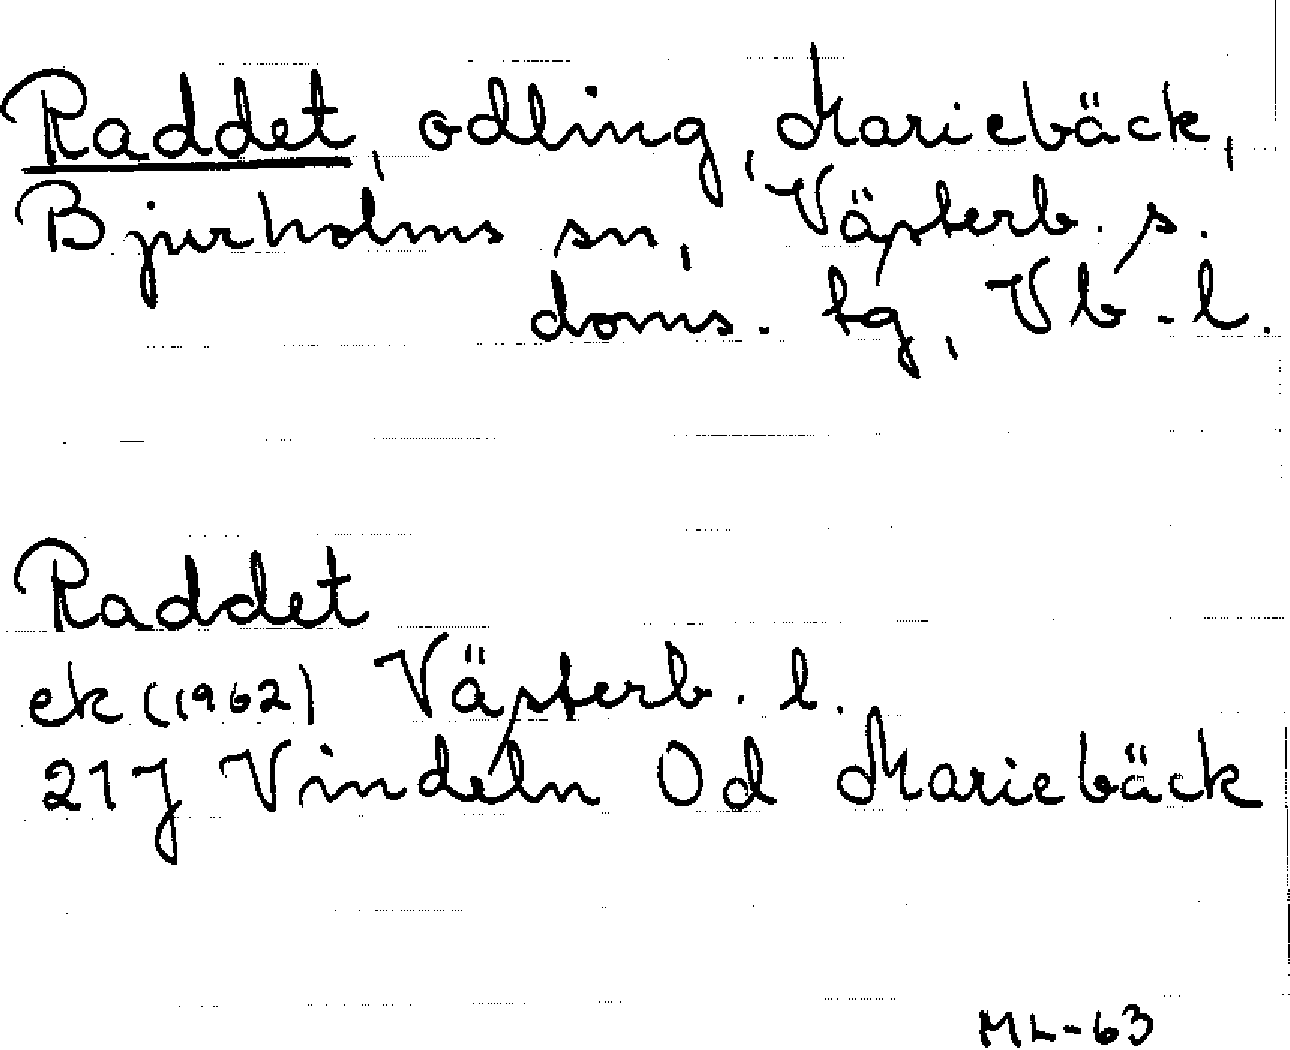 Raddet, odling, Mariebäck,
Bjurholms sn, Västerb. s.
doms. tg, Vb-l.
Raddet
ek (1962) Västerb. l.
21J Vindeln Od Mariebäck
ML-63